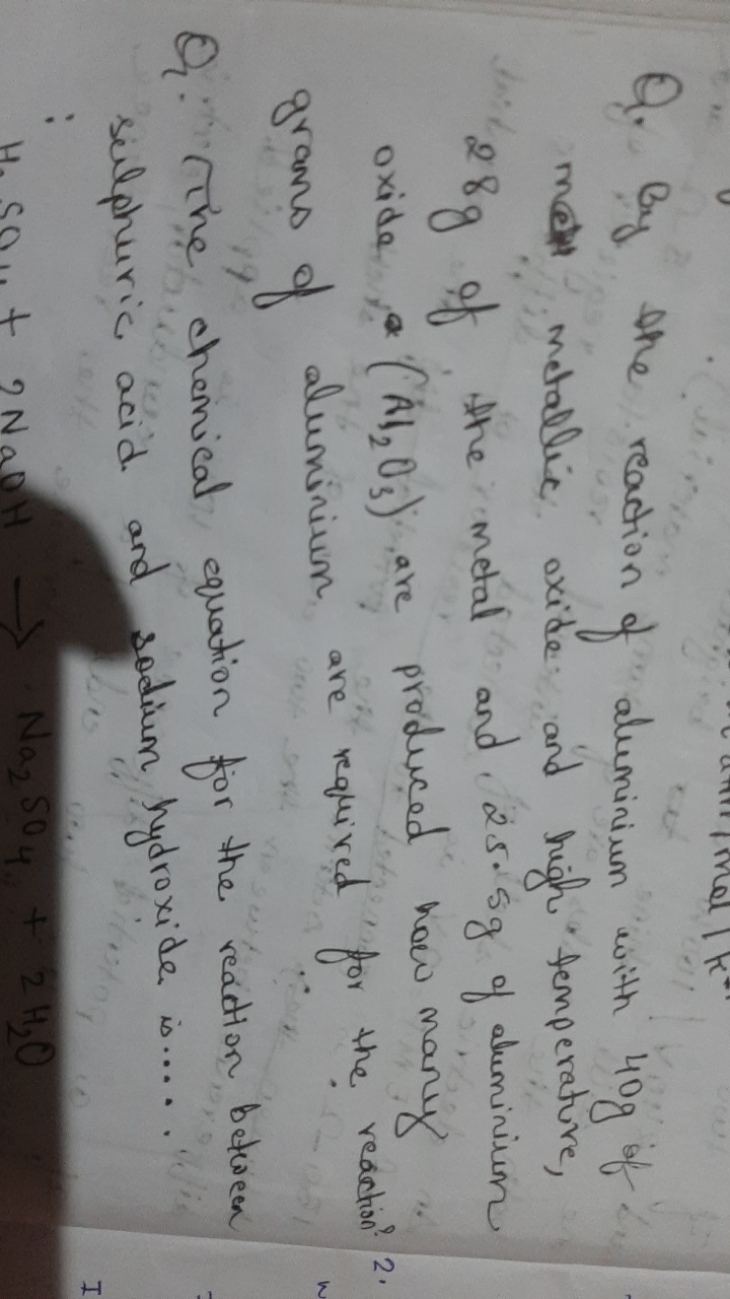 Q. By the reaction of aluminium with 40g of
metallic oxide and high temperature,
28g of the metal and 25.5g of aluminium
oxide (Al₂O₃) are produced how many
grams of aluminium are required for the reaction?
Q. The chemical equation for the reaction between
sulphuric acid and sodium hydroxide is.....
: H₂SO₄ + 2NaOH → Na₂SO₄ + 2H₂O
2.